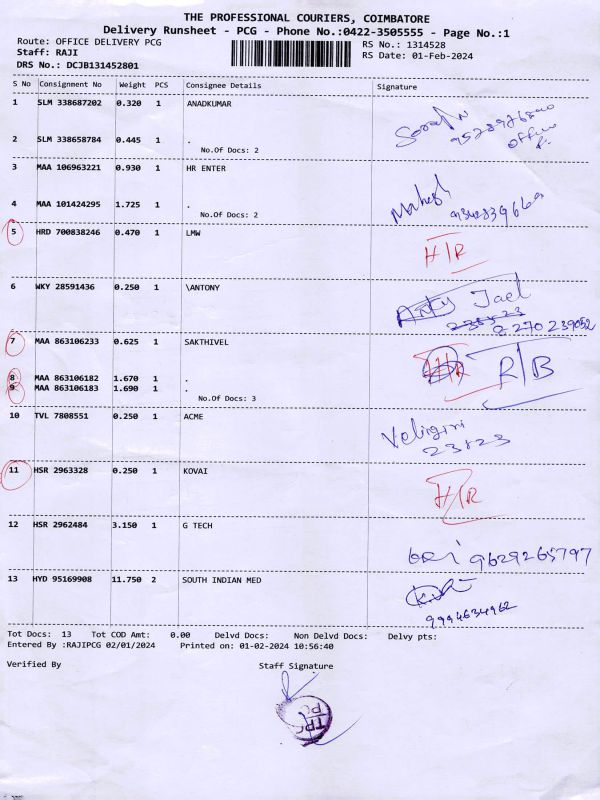 THE PROFESSIONAL COURIERS, COIMBATORE
Delivery Runsheet - PCG - Phone No.:0422-3505555 - Page No.:1
Route: OFFICE DELIVERY PCG
RS No.: 1314528
Staff: RAJI
RS Date: 01-Feb-2024
DRS No.: DCJB131452801
S No Consignment No Weight PCS Consignee Details Signature
1 SLM 338687202 0.320 1 ANADKUMAR
2 SLM 338658784 0.445 1 .
No.Of Docs: 2
office
3 MAA 106963221 0.930 1 HR ENTER
4 MAA 101424295 1.725 1 . Mahesh
No.Of Docs: 2
5 HRD 700838246 0.470 1 LMW
H/R
6 WKY 28591436 0.250 1 \ANTONY
Jael
2270239052
7 MAA 863106233 0.625 1 SAKTHIVEL
R/B
8 MAA 863106182 1.670 1 .
9 MAA 863106183 1.690 1 .
No.Of Docs: 3
10 TVL 7808551 0.250 1 ACME
23823
11 HSR 2963328 0.250 1 KOVAI
H/R
12 HSR 2962484 3.150 1 G TECH
9629265797
13 HYD 95169908 11.750 2 SOUTH INDIAN MED
9994634962
Tot Docs: 13 Tot COD Amt: 0.00 Delvd Docs: Non Delvd Docs: Delvy pts:
Entered By :RAJIPCG 02/01/2024 Printed on: 01-02-2024 10:56:40
Verified By Staff Signature
TPC
PC